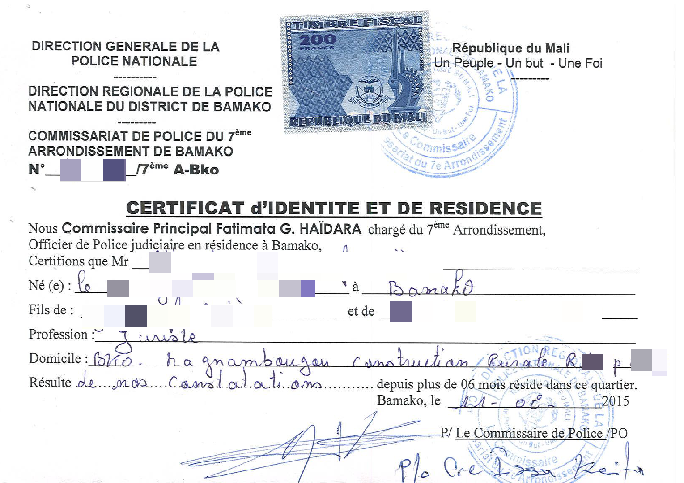 DIRECTION GENERALE DE LA
POLICE NATIONALE
----------
DIRECTION REGIONALE DE LA POLICE
NATIONALE DU DISTRICT DE BAMAKO
---------
COMMISSARIAT DE POLICE DU 7ème
ARRONDISSEMENT DE BAMAKO
N° /7ème A-Bko
TIMBRE FISCAL
200
FRANCS
REPUBLIQUE DU MALI
République du Mali
Un Peuple - Un but - Une Foi
---------
Commissaire
du 7e Arrondissement
CERTIFICAT d'IDENTITE ET DE RESIDENCE
Nous Commissaire Principal Fatimata G. HAÏDARA chargé du 7ème Arrondissement,
Officier de Police judiciaire en résidence à Bamako,
Certifions que Mr
Né (e) : le à Bamako
Fils de : et de
Profession : Juriste
Domicile : BKO. Magnambougou Construction R p
Résulte de nos Constatations depuis plus de 06 mois réside dans ce quartier.
Bamako, le 2015
P/ Le Commissaire de Police /PO
P/o